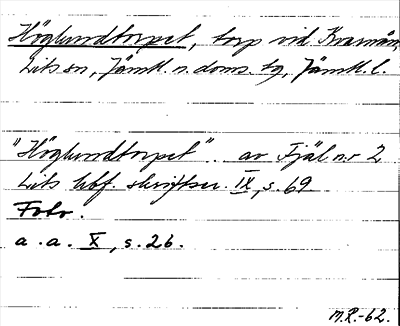 Höglundtorpet, torp vid Kvarnån,
Lits sn, Jämtl. n. doms. tg, Jämtl. l.
"Höglundtorpet". av Fjäl n:r 2
Lits hbf. skriftser. IX, s. 69
Foto.
a. a. X, s. 26.
M.R.-62.